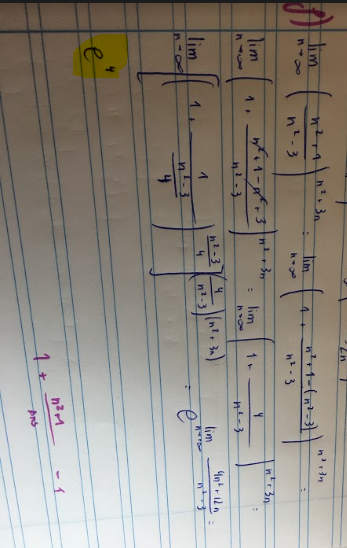 f) lim n→∞ ( (n²+1)/(n²-3) )^(n²+3n) = lim n→∞ ( 1 + (n²+1-(n²-3))/(n²-3) )^(n²+3n) =
lim n→∞ ( 1 + (n²+1-n²+3)/(n²-3) )^(n²+3n) = lim n→∞ ( 1 + 4/(n²-3) )^(n²+3n) =
lim n→∞ [ ( 1 + 1/((n²-3)/4) )^((n²-3)/4) ]^((4/(n²-3))(n²+3n)) = e^(lim n→∞ (4n²+12n)/(n²-3)) =
e⁴